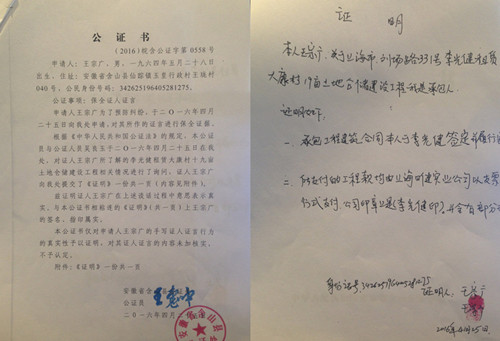 公证书
（2016）皖含公证字第0558号
申请人：王宗广，男，一九六四年五月二十八日
出生，住址：安徽省含山县仙踪镇王贵行政村王妹村
040号，公民身份号码：342625196405281275。
公证事项：保全证人证言
申请人王宗广为了预防纠纷，于二〇一六年四月二
十五日向我处申请，对其所作的证言进行保全证据。
根据《中华人民共和国公证法》的规定，本公证员
与公证人员吴良玉于二〇一六年四月二十五日在我
处，对证人王宗广所了解的李光健租赁大康村十九亩
土地仓储建设工程相关情况进行了询问，证人王宗广
向我处提交了《证明》一份共一页（内容见附件）。
兹证明证人王宗广在上述谈话过程中意思表示真
实，与本公证书相粘连的《证明》（共一页）上王宗广
的签名、指印属实。
本公证书仅对申请人王宗广的手写证人证言行为
的真实性予以证明，对其证人证言的内容未加核实，
不予认定。
附件：《证明》一份共一页
安徽省含山县
公证员
二〇一六年四月二
证明
本人王宗广，关于上海市
331号李光健租赁
大康村19亩土地仓储建设工程
承包人
证明如下：
一、承包工程建筑合同本人与李光健签定并履行
二、所支付的工程款均由上海
实业公司以支票
方式支付，公司印章及李光健印
身份证号：342625196405281275
证明人：王宗广
2016年4月25日